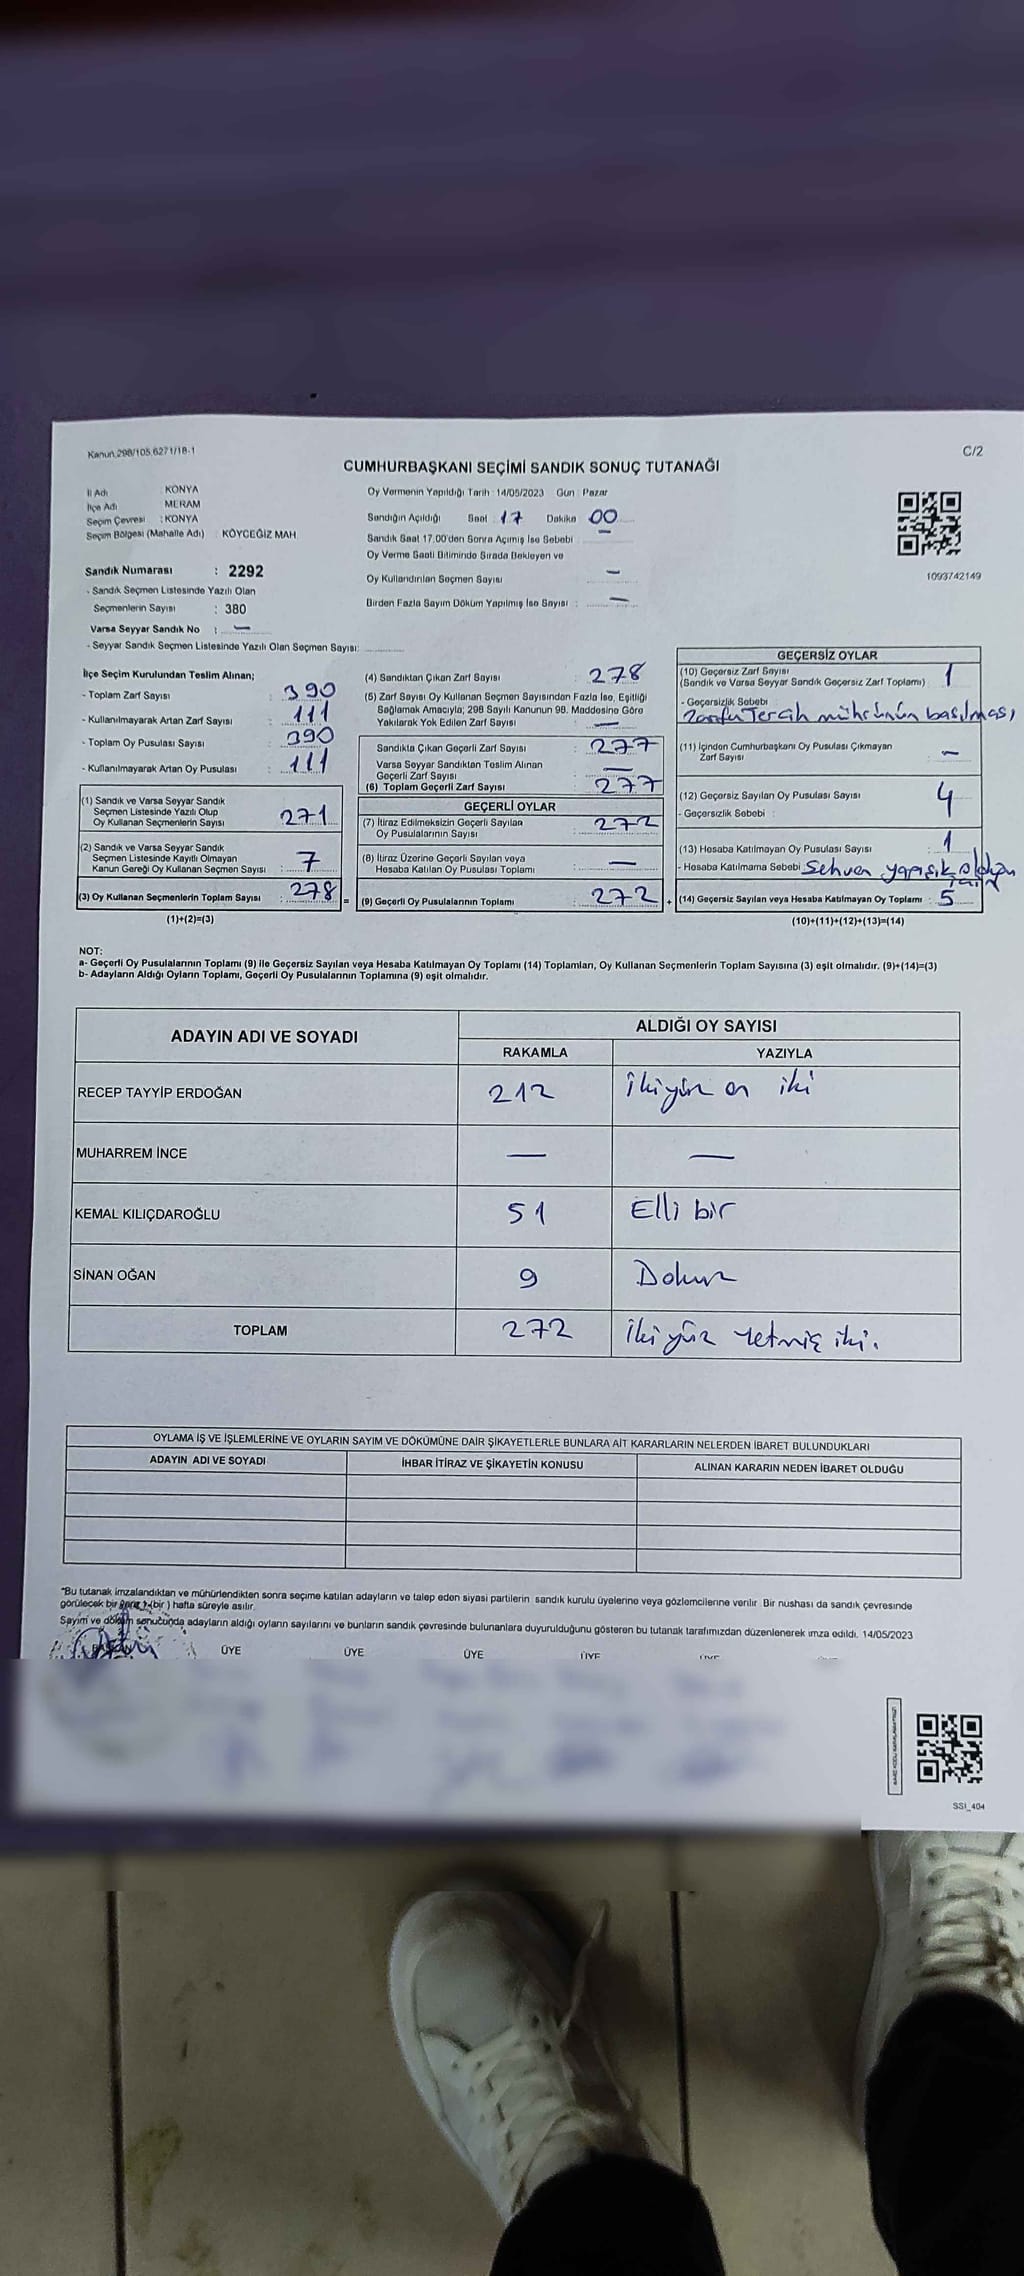 Kanun.298/105.6271/18-1
C/2
CUMHURBAŞKANI SEÇİMİ SANDIK SONUÇ TUTANAĞI
İl Adı : KONYA
İlçe Adı : MERAM
Seçim Çevresi : KONYA
Seçim Bölgesi (Mahalle Adı) : KÖYCEĞİZ MAH.
Sandık Numarası : 2292
- Sandık Seçmen Listesinde Yazılı Olan
Seçmenlerin Sayısı : 380
Varsa Seyyar Sandık No : —
- Seyyar Sandık Seçmen Listesinde Yazılı Olan Seçmen Sayısı:
Oy Vermenin Yapıldığı Tarih : 14/05/2023 Gün : Pazar
Sandığın Açıldığı Saat : 17 Dakika 00
Sandık Saat 17.00'den Sonra Açılmış İse Sebebi : —
Oy Verme Saati Bitiminde Sırada Bekleyen ve
Oy Kullandırılan Seçmen Sayısı : —
Birden Fazla Sayım Döküm Yapılmış İse Sayısı : —
1093742149
İlçe Seçim Kurulundan Teslim Alınan;
- Toplam Zarf Sayısı : 390
- Kullanılmayarak Artan Zarf Sayısı : 111
- Toplam Oy Pusulası Sayısı : 390
- Kullanılmayarak Artan Oy Pusulası : 111
(1) Sandık ve Varsa Seyyar Sandık
Seçmen Listesinde Yazılı Olup
Oy Kullanan Seçmenlerin Sayısı : 271
(2) Sandık ve Varsa Seyyar Sandık
Seçmen Listesinde Kayıtlı Olmayan
Kanun Gereği Oy Kullanan Seçmen Sayısı : 7
(3) Oy Kullanan Seçmenlerin Toplam Sayısı : 278 =
(1)+(2)=(3)
(4) Sandıktan Çıkan Zarf Sayısı : 278
(5) Zarf Sayısı Oy Kullanan Seçmen Sayısından Fazla İse, Eşitliği
Sağlamak Amacıyla; 298 Sayılı Kanunun 98. Maddesine Göre
Yakılarak Yok Edilen Zarf Sayısı : —
Sandıkta Çıkan Geçerli Zarf Sayısı : 277
Varsa Seyyar Sandıktan Teslim Alınan
Geçerli Zarf Sayısı : —
(6) Toplam Geçerli Zarf Sayısı : 277
GEÇERLİ OYLAR
(7) İtiraz Edilmeksizin Geçerli Sayılan
Oy Pusulalarının Sayısı : 272
(8) İtiraz Üzerine Geçerli Sayılan veya
Hesaba Katılan Oy Pusulası Toplamı : —
(9) Geçerli Oy Pusulalarının Toplamı : 272 +
GEÇERSİZ OYLAR
(10) Geçersiz Zarf Sayısı
(Sandık ve Varsa Seyyar Sandık Geçersiz Zarf Toplamı) : 1
- Geçersizlik Sebebi
Zarfın Tercih mührünün basılması,
(11) İçinden Cumhurbaşkanı Oy Pusulası Çıkmayan
Zarf Sayısı : —
(12) Geçersiz Sayılan Oy Pusulası Sayısı : 4
- Geçersizlik Sebebi :
(13) Hesaba Katılmayan Oy Pusulası Sayısı : 1
- Hesaba Katılmama Sebebi Sehven yapışık olduğu
için
(14) Geçersiz Sayılan veya Hesaba Katılmayan Oy Toplamı : 5
(10)+(11)+(12)+(13)=(14)
NOT:
a- Geçerli Oy Pusulalarının Toplamı (9) ile Geçersiz Sayılan veya Hesaba Katılmayan Oy Toplamı (14) Toplamları, Oy Kullanan Seçmenlerin Toplam Sayısına (3) eşit olmalıdır. (9)+(14)=(3)
b- Adayların Aldığı Oyların Toplamı, Geçerli Oy Pusulalarının Toplamına (9) eşit olmalıdır.
ADAYIN ADI VE SOYADI
ALDIĞI OY SAYISI
RAKAMLA YAZIYLA
RECEP TAYYİP ERDOĞAN 212 İkiyüz on iki
MUHARREM İNCE — —
KEMAL KILIÇDAROĞLU 51 Elli bir
SİNAN OĞAN 9 Dokuz
TOPLAM 272 İkiyüz Yetmiş iki.
OYLAMA İŞ VE İŞLEMLERİNE VE OYLARIN SAYIM VE DÖKÜMÜNE DAİR ŞİKAYETLERLE BUNLARA AİT KARARLARIN NELERDEN İBARET BULUNDUKLARI
ADAYIN ADI VE SOYADI İHBAR İTİRAZ VE ŞİKAYETİN KONUSU ALINAN KARARIN NEDEN İBARET OLDUĞU
*Bu tutanak imzalandıktan ve mühürlendikten sonra seçime katılan adayların ve talep eden siyasi partilerin sandık kurulu üyelerine veya gözlemcilerine verilir. Bir nushası da sandık çevresinde
görülecek bir yere 1 (bir) hafta süreyle asılır.
Sayım ve döküm sonucunda adayların aldığı oyların sayılarını ve bunların sandık çevresinde bulunanlara duyurulduğunu gösteren bu tutanak tarafımızdan düzenlenerek imza edildi. 14/05/2023
BAŞKAN ÜYE ÜYE ÜYE ÜYE ÜYE
SSI_404